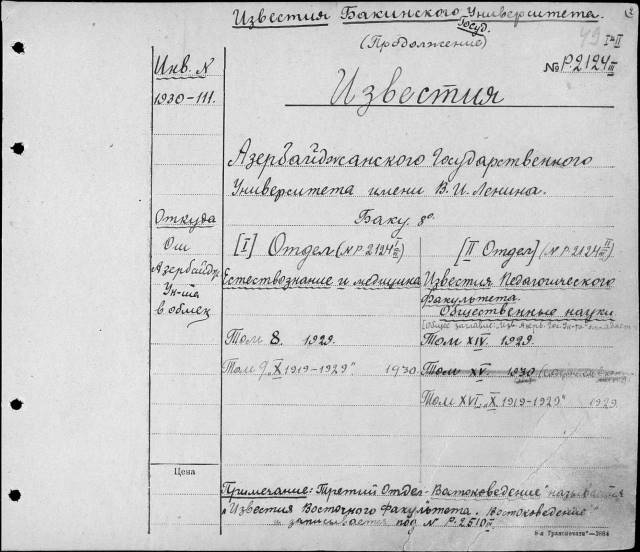 Известия Бакинского Университета.
Госуд.
(Продолжение)
49 I-II
№ Р.2124 III
Инв. N
1930-III.
Известия
Азербайджанского Государственного
Университета имени В. И. Ленина.
Баку. 8°.
Откуда
От
Азербайдж.
Ун-та
в обмен
[I] Отдел (№ Р 2124 I/III)
Естествознание и медицина
Том 8. 1929.
Том 9 „X 1919-1929" 1930.
[II Отдел] (№ Р. 2124 II/III)
Известия Педагогического
факультета.
Общественные науки
[Общее заглавие: Изв. Азерб. Гос. Ун-та
Том XIV. 1929.
Том XV. 1930
Том XVI „X 1919-1929" 1929.
Цена
Примечание: Третий Отдел - Востоковедение" называется
„Известия Восточного Факультета. Востоковедение"
и записывается под N Р-2510 II
6-я Транспечати"—3884